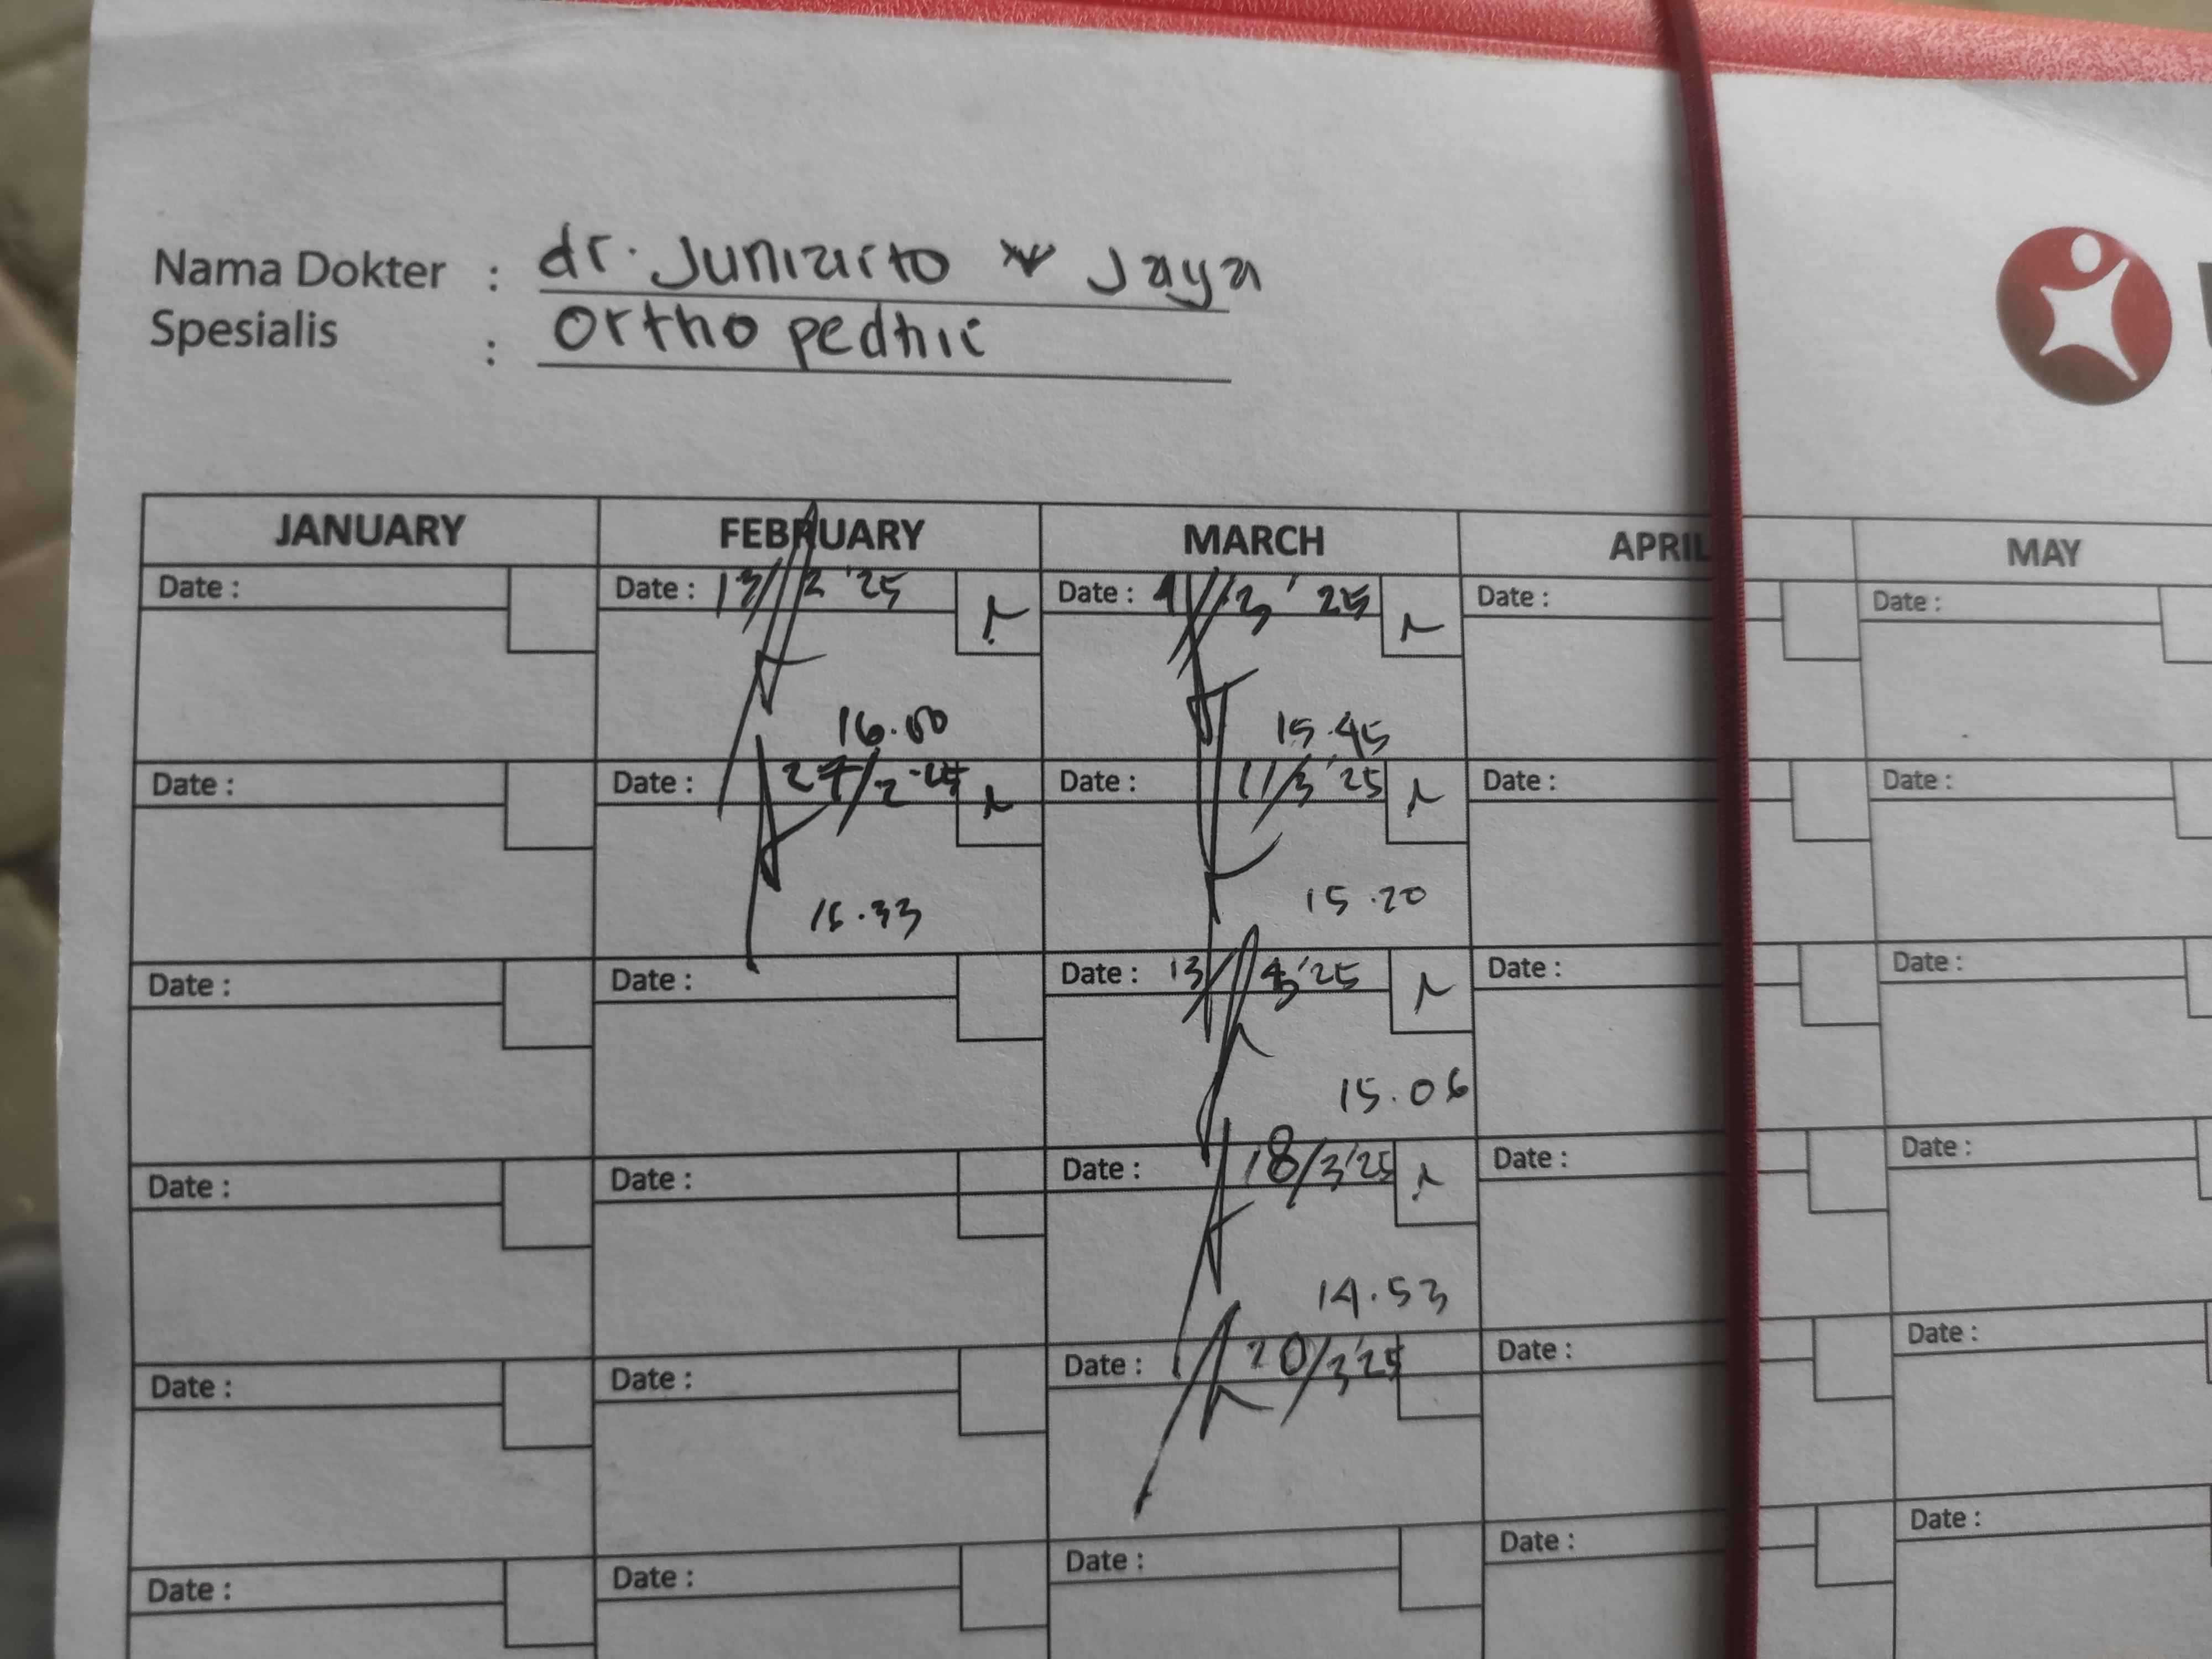 Nama Dokter : dr. Juniarto Jaya
Spesialis : Orthopedhic
JANUARY FEBRUARY MARCH APRIL MAY
Date : Date : 13/2 '25 Date : /3 ' 25 Date : Date :
16.00 15.45
Date : Date : 27/2 Date : 11/3 '25 Date : Date :
15.33 15.20
Date : Date : Date : 13/3 '25 Date : Date :
15.06
Date : Date : Date : 18/3 '25 Date : Date :
14.53
Date : Date : Date : 20/3 '25 Date : Date :
Date : Date : Date : Date : Date :